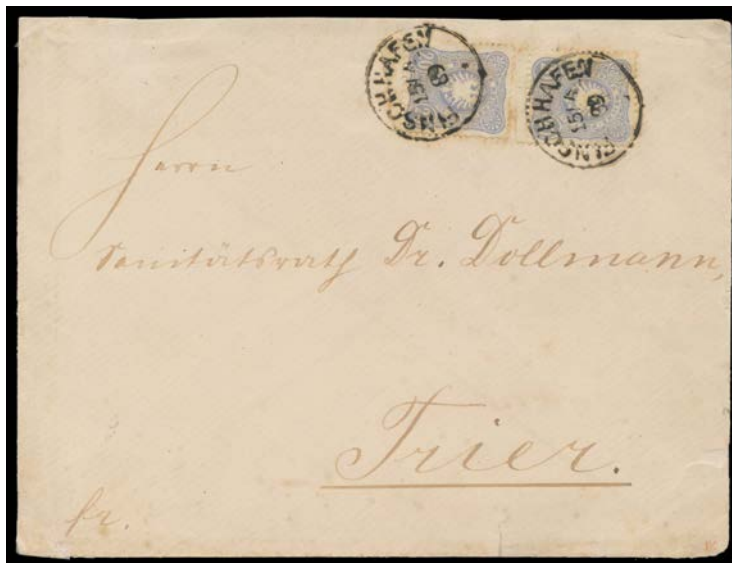 FINSCHHAFEN
FINSCHHAFEN
Herrn
Sanitätsrath Dr. Dollmann,
Trier.
fr.